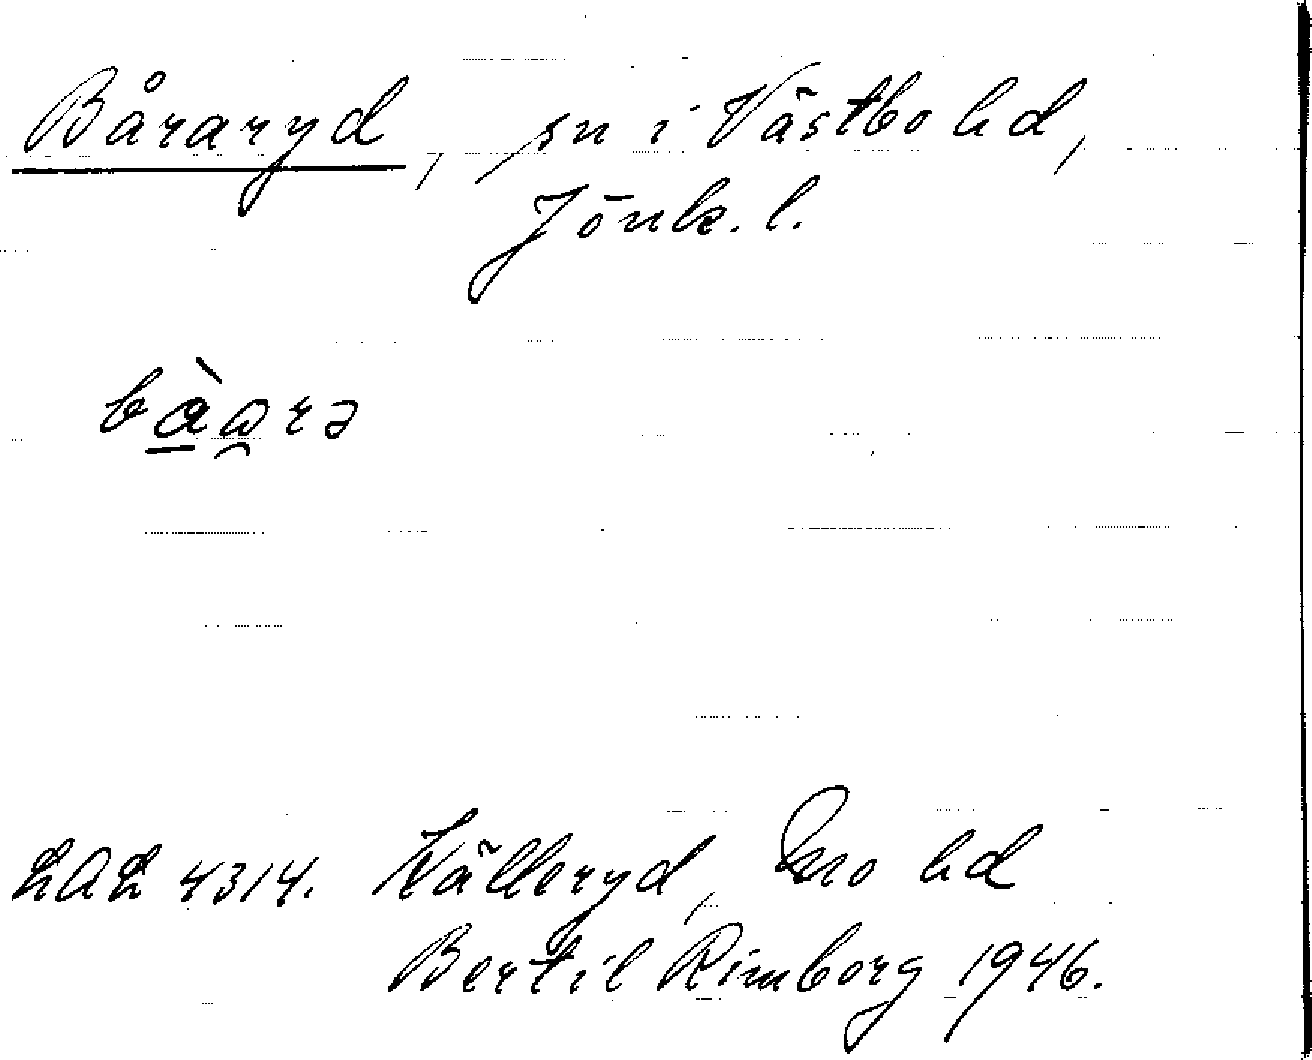 Båraryd, sn i Västbo hd,
Jönk. l.
bàarə
LAL 4314. Källeryd, Mo hd
Bertil Rimborg 1946.